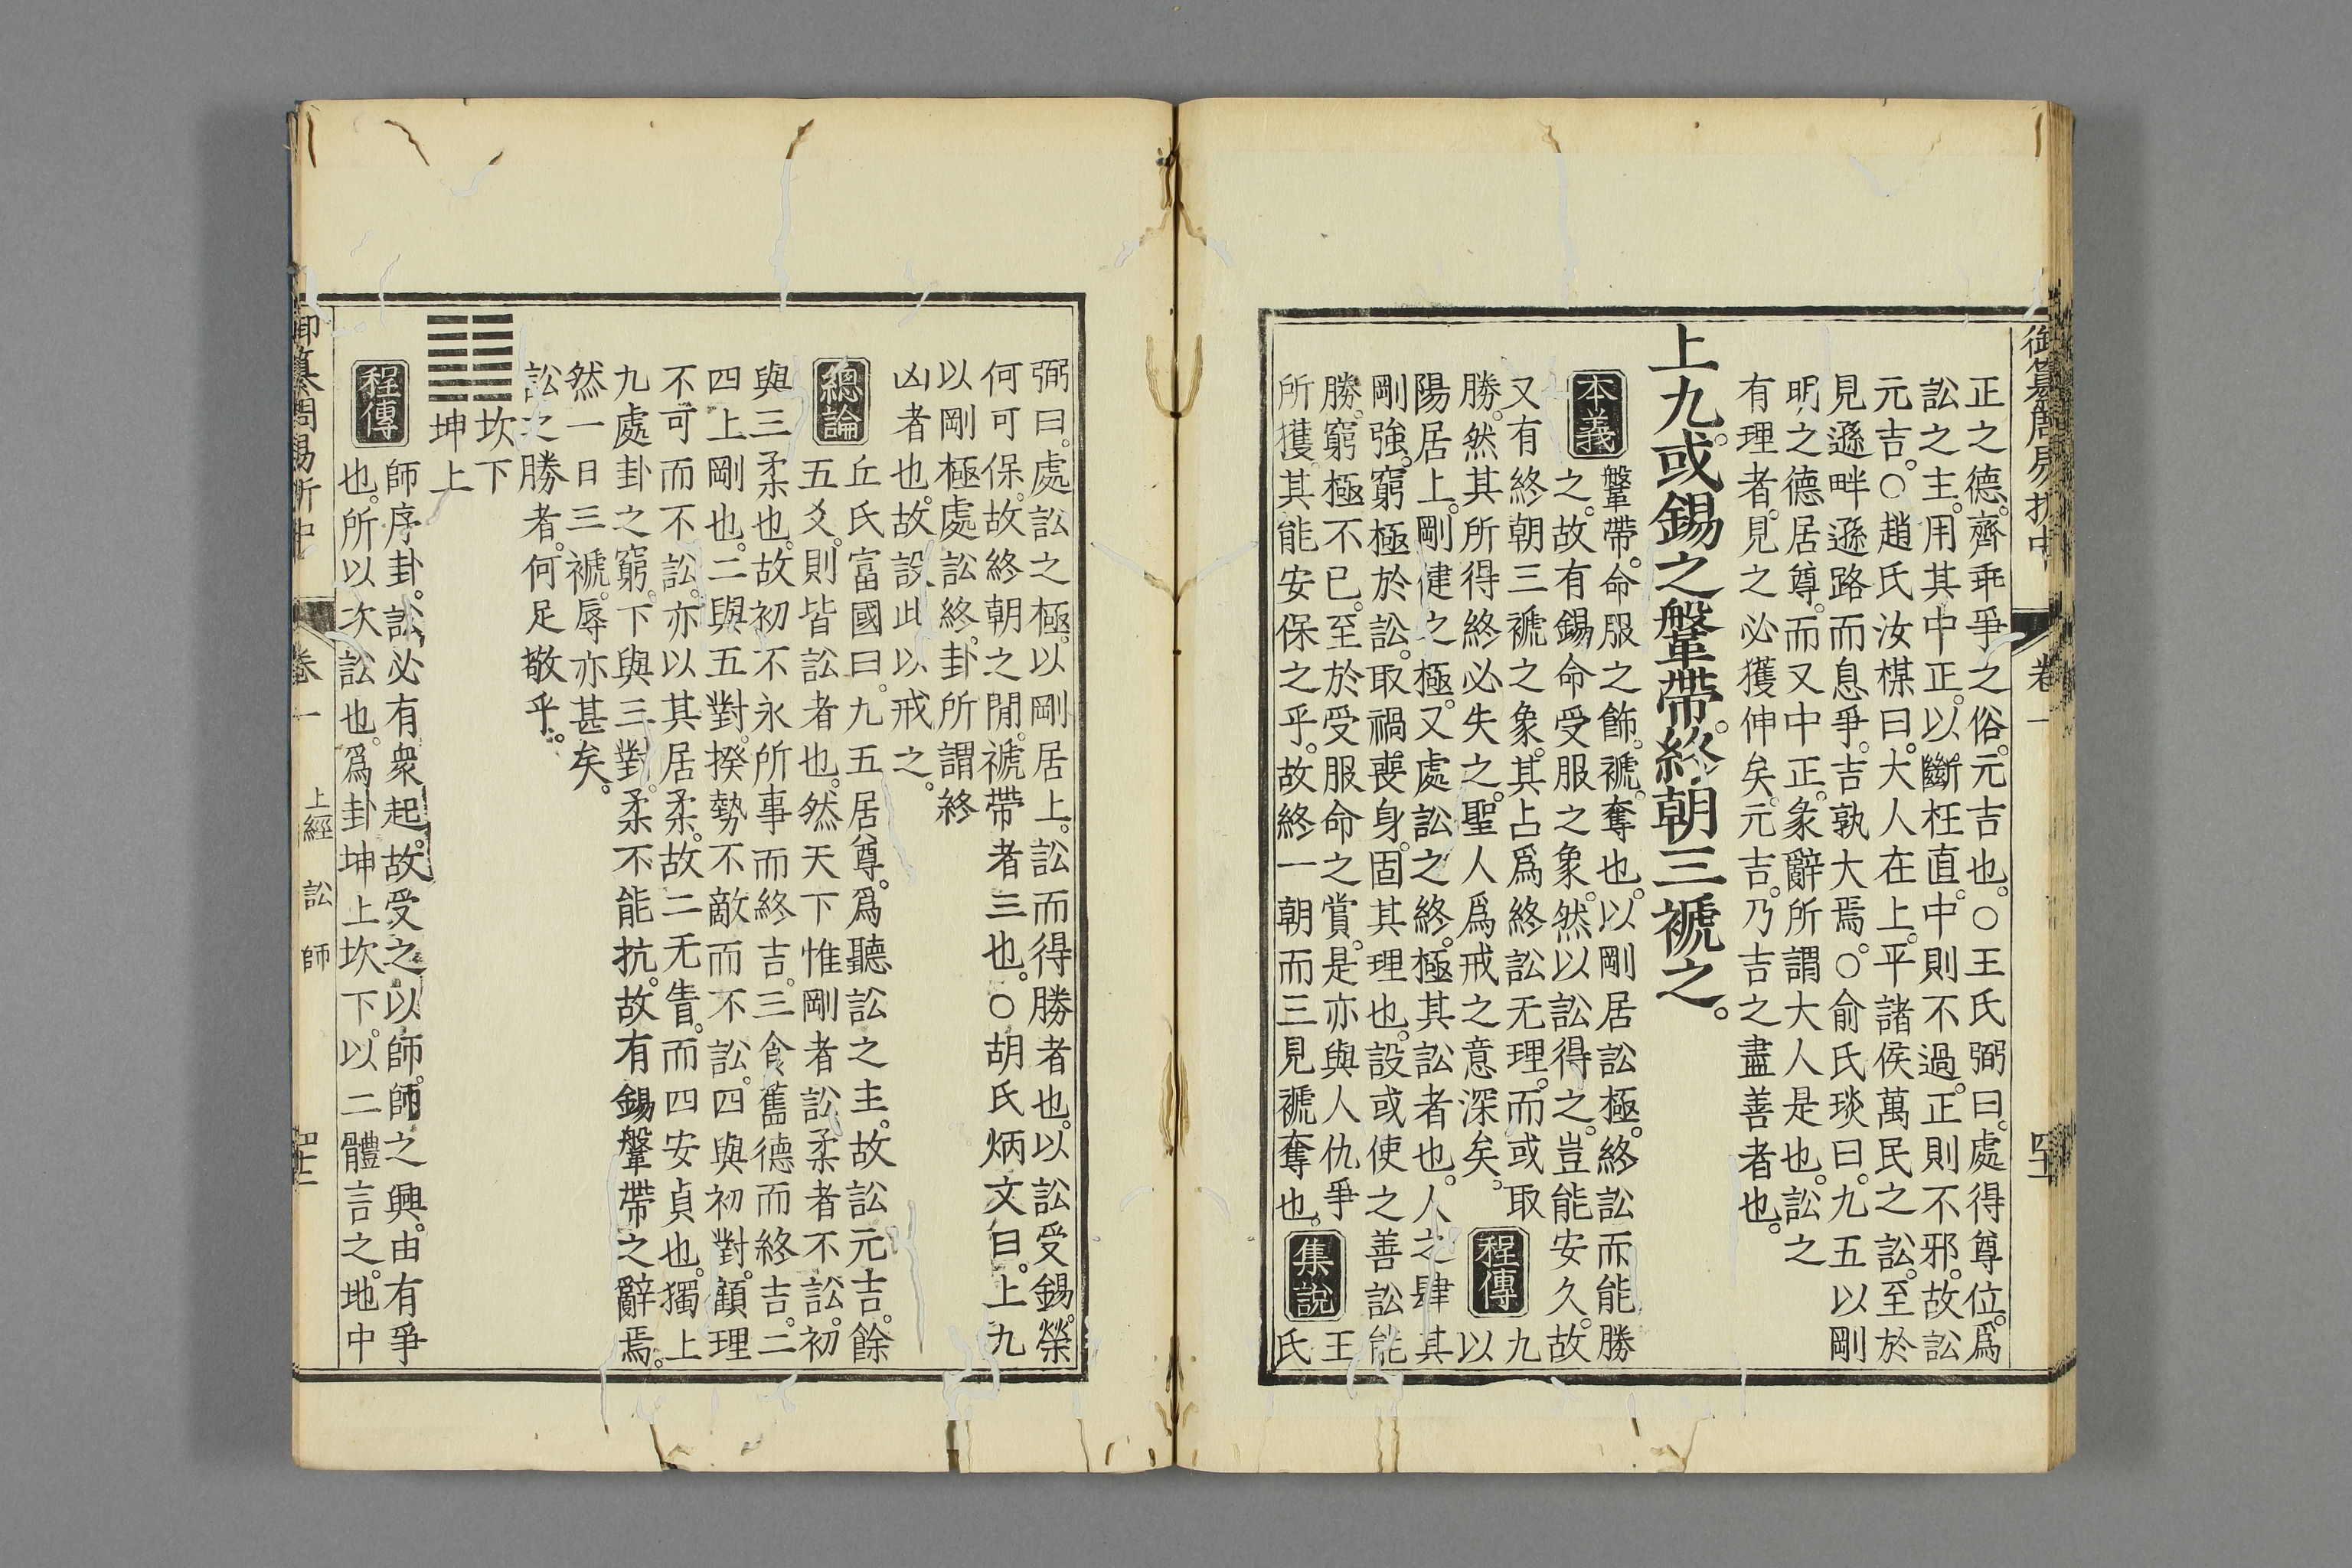 御纂周易折中 卷一 四十二
正之德。齊乖爭之俗。元吉也。○王氏弼曰。處得尊位。爲
訟之主。用其中正。以斷枉直。中則不過。正則不邪。故訟
元吉。○趙氏汝楳曰。大人在上。平諸侯萬民之訟。至於
見遜畔遜路而息爭。吉孰大焉。○俞氏琰曰。九五以剛
明之德居尊。而又中正。彖辭所謂大人是也。訟之
有理者。見之必獲伸矣。元吉。乃吉之盡善者也。
上九。或錫之鞶帶。終朝三褫之。
本義
鞶帶。命服之飾。褫。奪也。以剛居訟極。終訟而能勝
之。故有錫命受服之象。然以訟得之。豈能安久。故
又有終朝三褫之象。其占爲終訟无理。而或取
勝。然其所得終必失之。聖人爲戒之意深矣。
程傳
九
以
陽居上。剛健之極。又處訟之終。極其訟者也。人之肆其
剛強。窮極於訟。取禍喪身。固其理也。設或使之善訟能
勝。窮極不已。至於受服命之賞。是亦與人仇爭
所獲。其能安保之乎。故終一朝而三見褫奪也。
集說
王
氏
弼曰。處訟之極。以剛居上。訟而得勝者也。以訟受錫。榮
何可保。故終朝之閒。褫帶者三也。○胡氏炳文曰。上九
以剛極處訟終。卦所謂終
凶者也。故設此以戒之。
總論
丘氏富國曰。九五居尊。爲聽訟之主。故訟元吉。餘
五爻。則皆訟者也。然天下惟剛者訟。柔者不訟。初
與三柔也。故初不永所事而終吉。三食舊德而終吉。二
四上剛也。二與五對。揆勢不敵而不訟。四與初對。顧理
不可而不訟。亦以其居柔。故二无眚。而四安貞也。獨上
九處卦之窮。下與三對。柔不能抗。故有錫鞶帶之辭焉。
然一日三褫。辱亦甚矣。
訟之勝者。何足敬乎。
坎下
坤上
程傳
師序卦。訟必有衆起。故受之以師。師之興。由有爭
也。所以次訟也。爲卦坤上坎下。以二體言之。地中
御纂周易折中 卷一 上經 訟 師